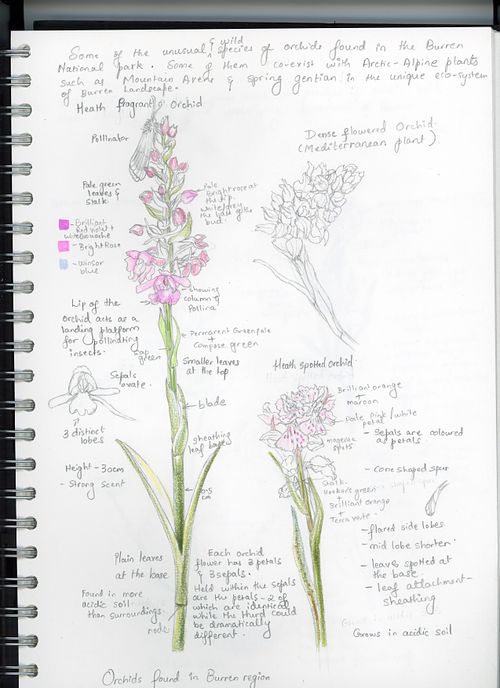 Some of the unusual & wild species of orchids found in the Burren
National park. Some of them coexist with Arctic-Alpine plants
such as Mountain Avens & Spring gentian in the unique eco-system
of Burren Landscape.
Heath fragrant Orchid
Pollinator
Dense flowered Orchid.
(Mediterranean plant)
Pale green
leaves &
Stalk
Pale
Bright rose at
the tip.
White/grey
the base of the
bud.
- Brilliant
Red violet +
white gouache
- Bright Rose
- Winsor
blue
- showing
column of
Pollina
Lip of the
orchid acts as a
landing platform
for pollinating
insects.
Permanent Green pale
+
Compose green
Sap
green
Smaller leaves
at the top
Heath spotted orchid.
Sepals
ovate.
3 distinct
lobes
blade
sheathing
leaf base
Brilliant orange
+
maroon
Pale pink / white
petal
magenta
spots
- Sepals are coloured
as petals
Height - 30cm
- Strong scent
0.5
cm
- Cone shaped spur
Stalk.
Hooker's green
+
Brilliant orange
+
Terra verte.
- flared side lobes
- mid lobe shorter.
- leaves spotted at
the base
- leaf attachment -
sheathing
Plain leaves
at the base
Each orchid
flower has 3 petals
& 3 sepals.
Held within the sepals
are the petals - 2 of
which are identical
while the third could
be dramatically
different.
Found in more
acidic soil
than surroundings.
node
Grows in acidic soil
Orchids found in Burren region